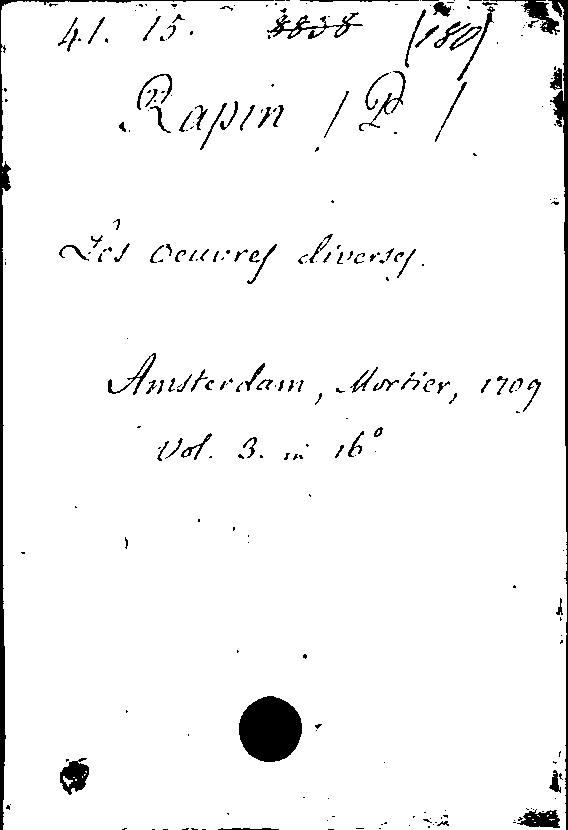 41. 15. 8838 (180)
Rapin / P. /
Lès oeuvres diverses.
Amsterdam, Mortier, 1709
Vol. 3. in 16°